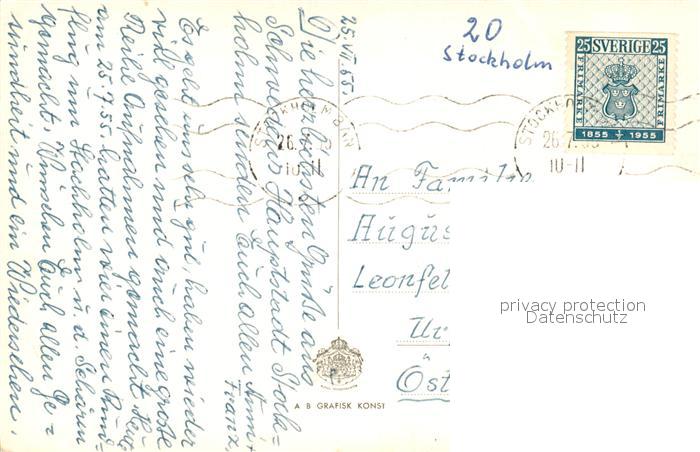 20
Stockholm
25 SVERIGE 25
FRIMÄRKE
FRIMÄRKE
1855 1955
STOCKHOLM BAN
26.7.
10-11
STOCKHOLM
26.7.
10-11
25. VII. 55
Die herzlichsten Grüße aus
Schwedens Hauptstadt Stock-
holm senden Euch allen Anni +
Franz.
Es geht uns sehr gut, haben wieder
viel gesehen und auch eine große
Reihe Aufnahmen gemacht. Heute
am 25.7.55 hatten wir einen Rund-
flug um Stockholm u. d. Schären
gemacht. Wünschen Euch allen Ge-
sundheit und ein Wiedersehen.
An Familie
Augus
Leonfel
Ur
Öst
A B GRAFISK KONST
privacy protection
Datenschutz